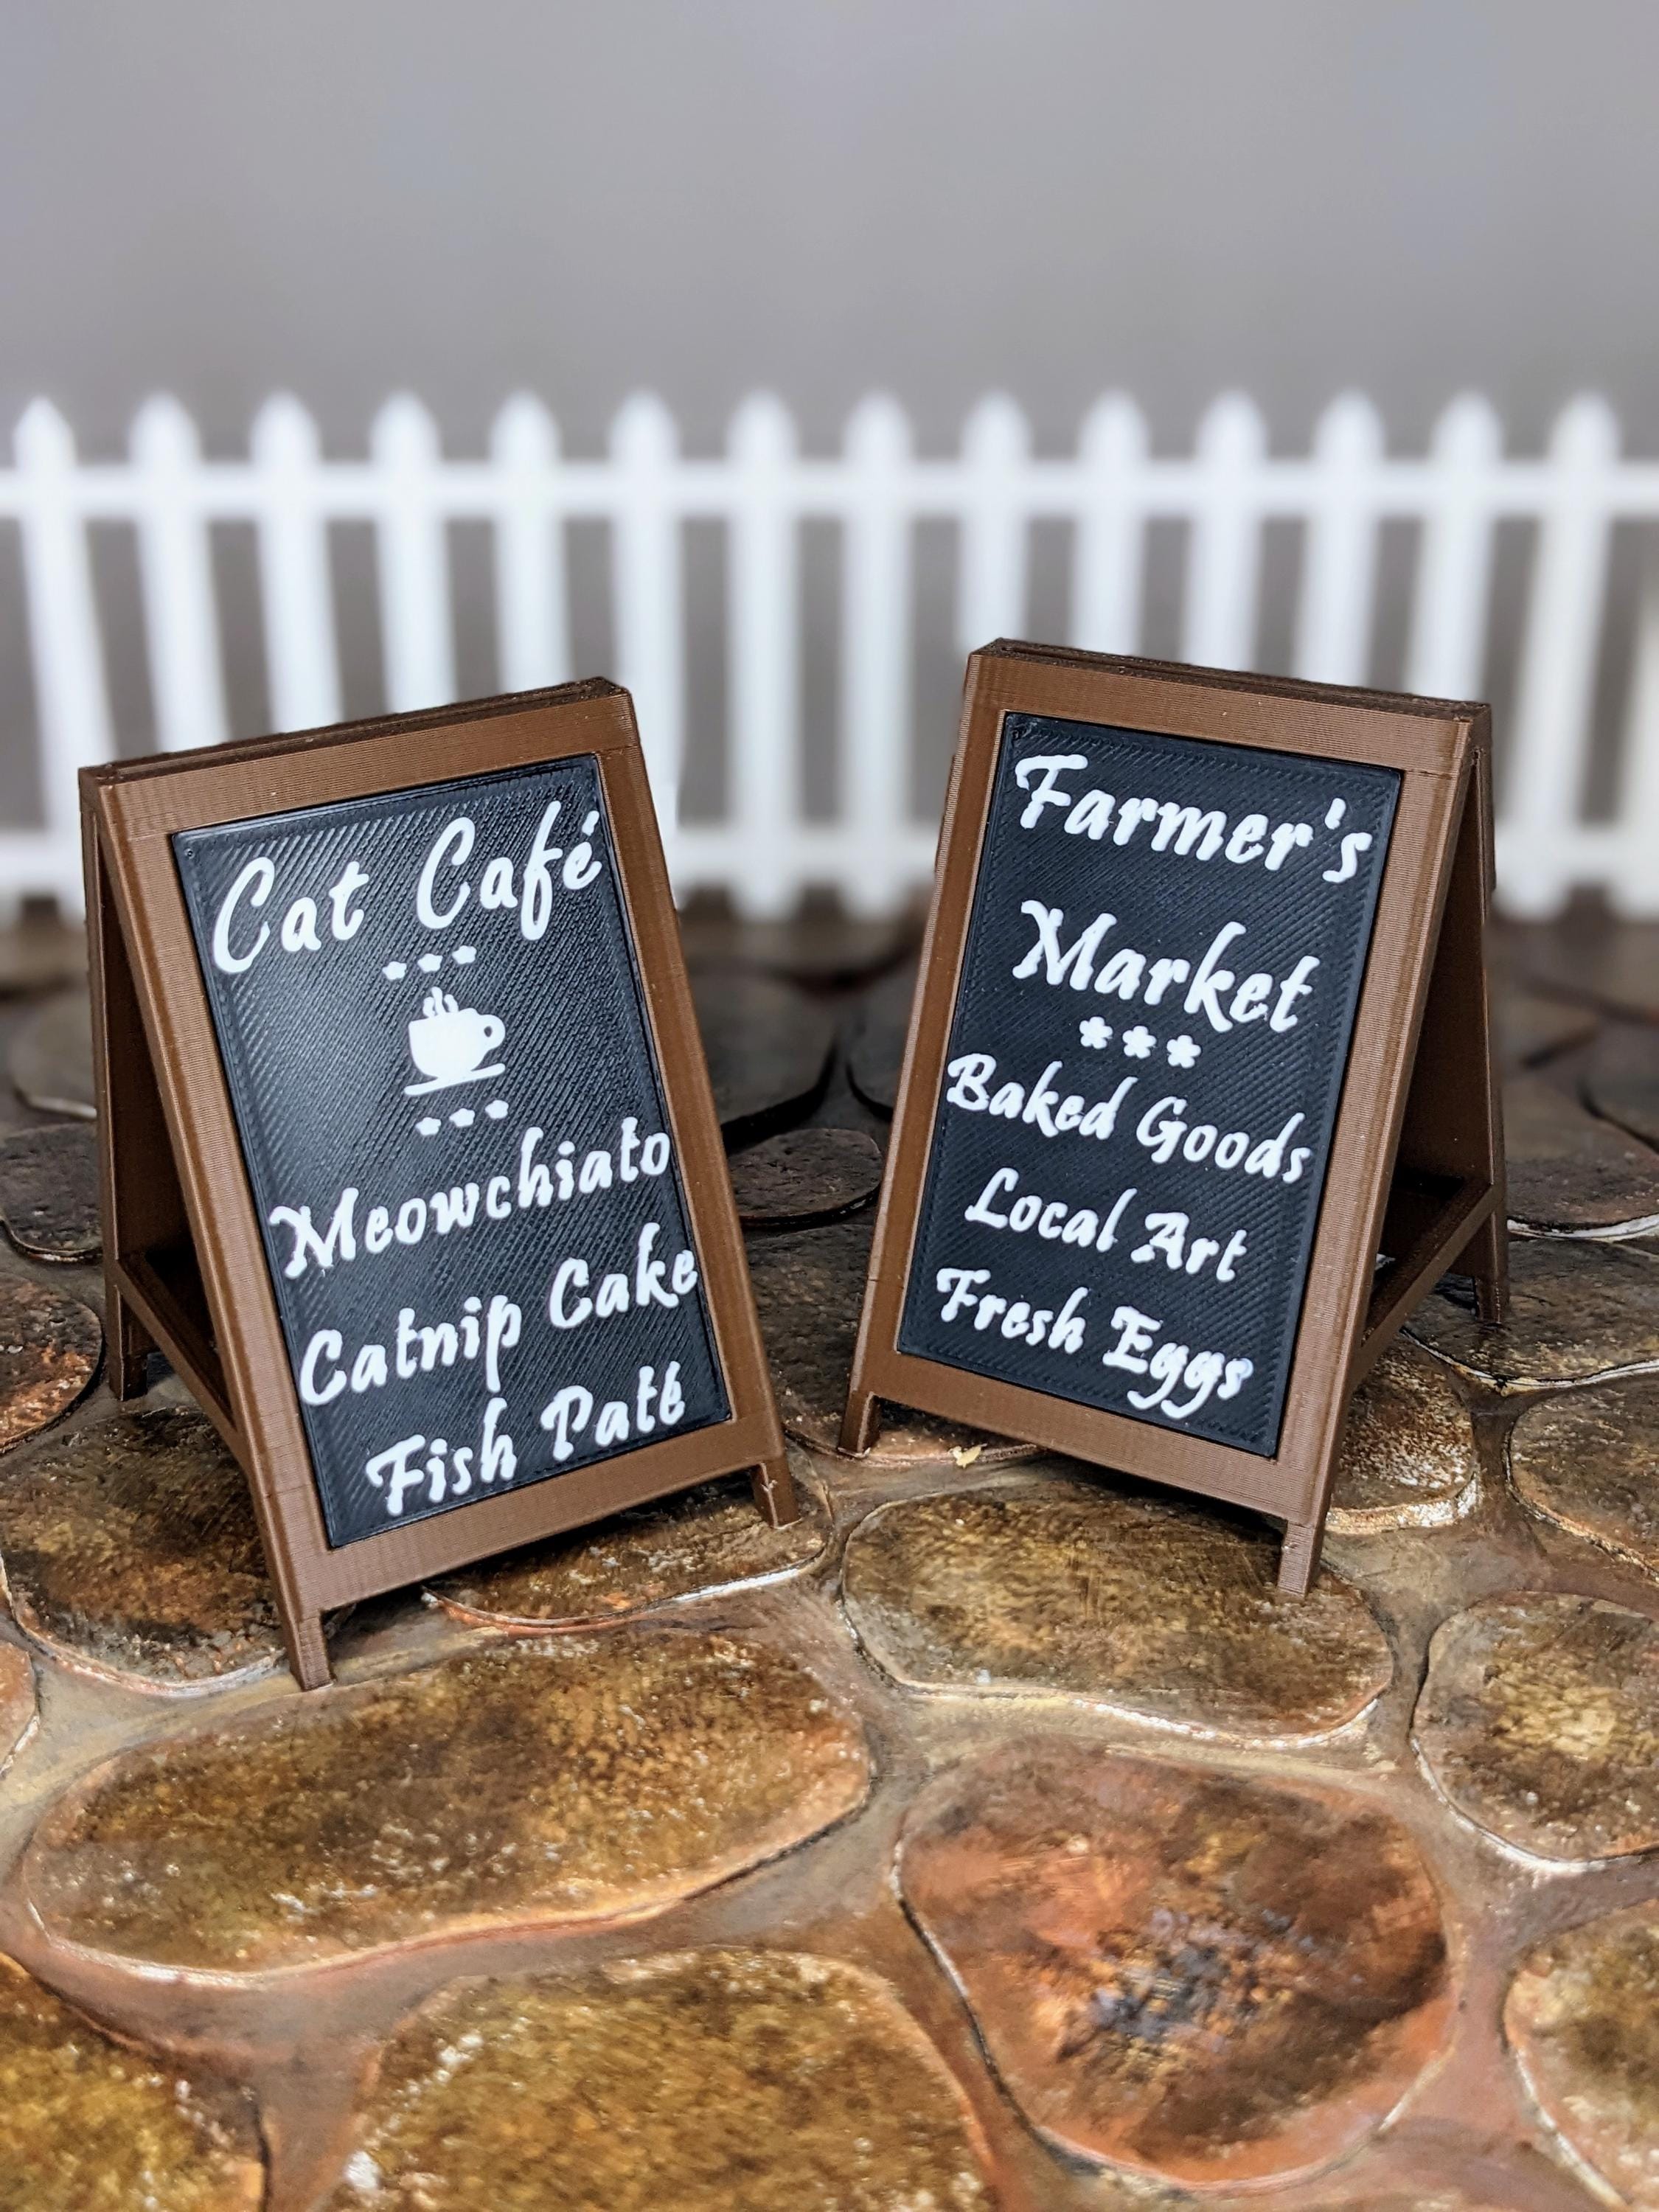 Cat Café
Meowchiato
Catnip Cake
Fish Paté
Farmer's
Market
***
Baked Goods
Local Art
Fresh Eggs